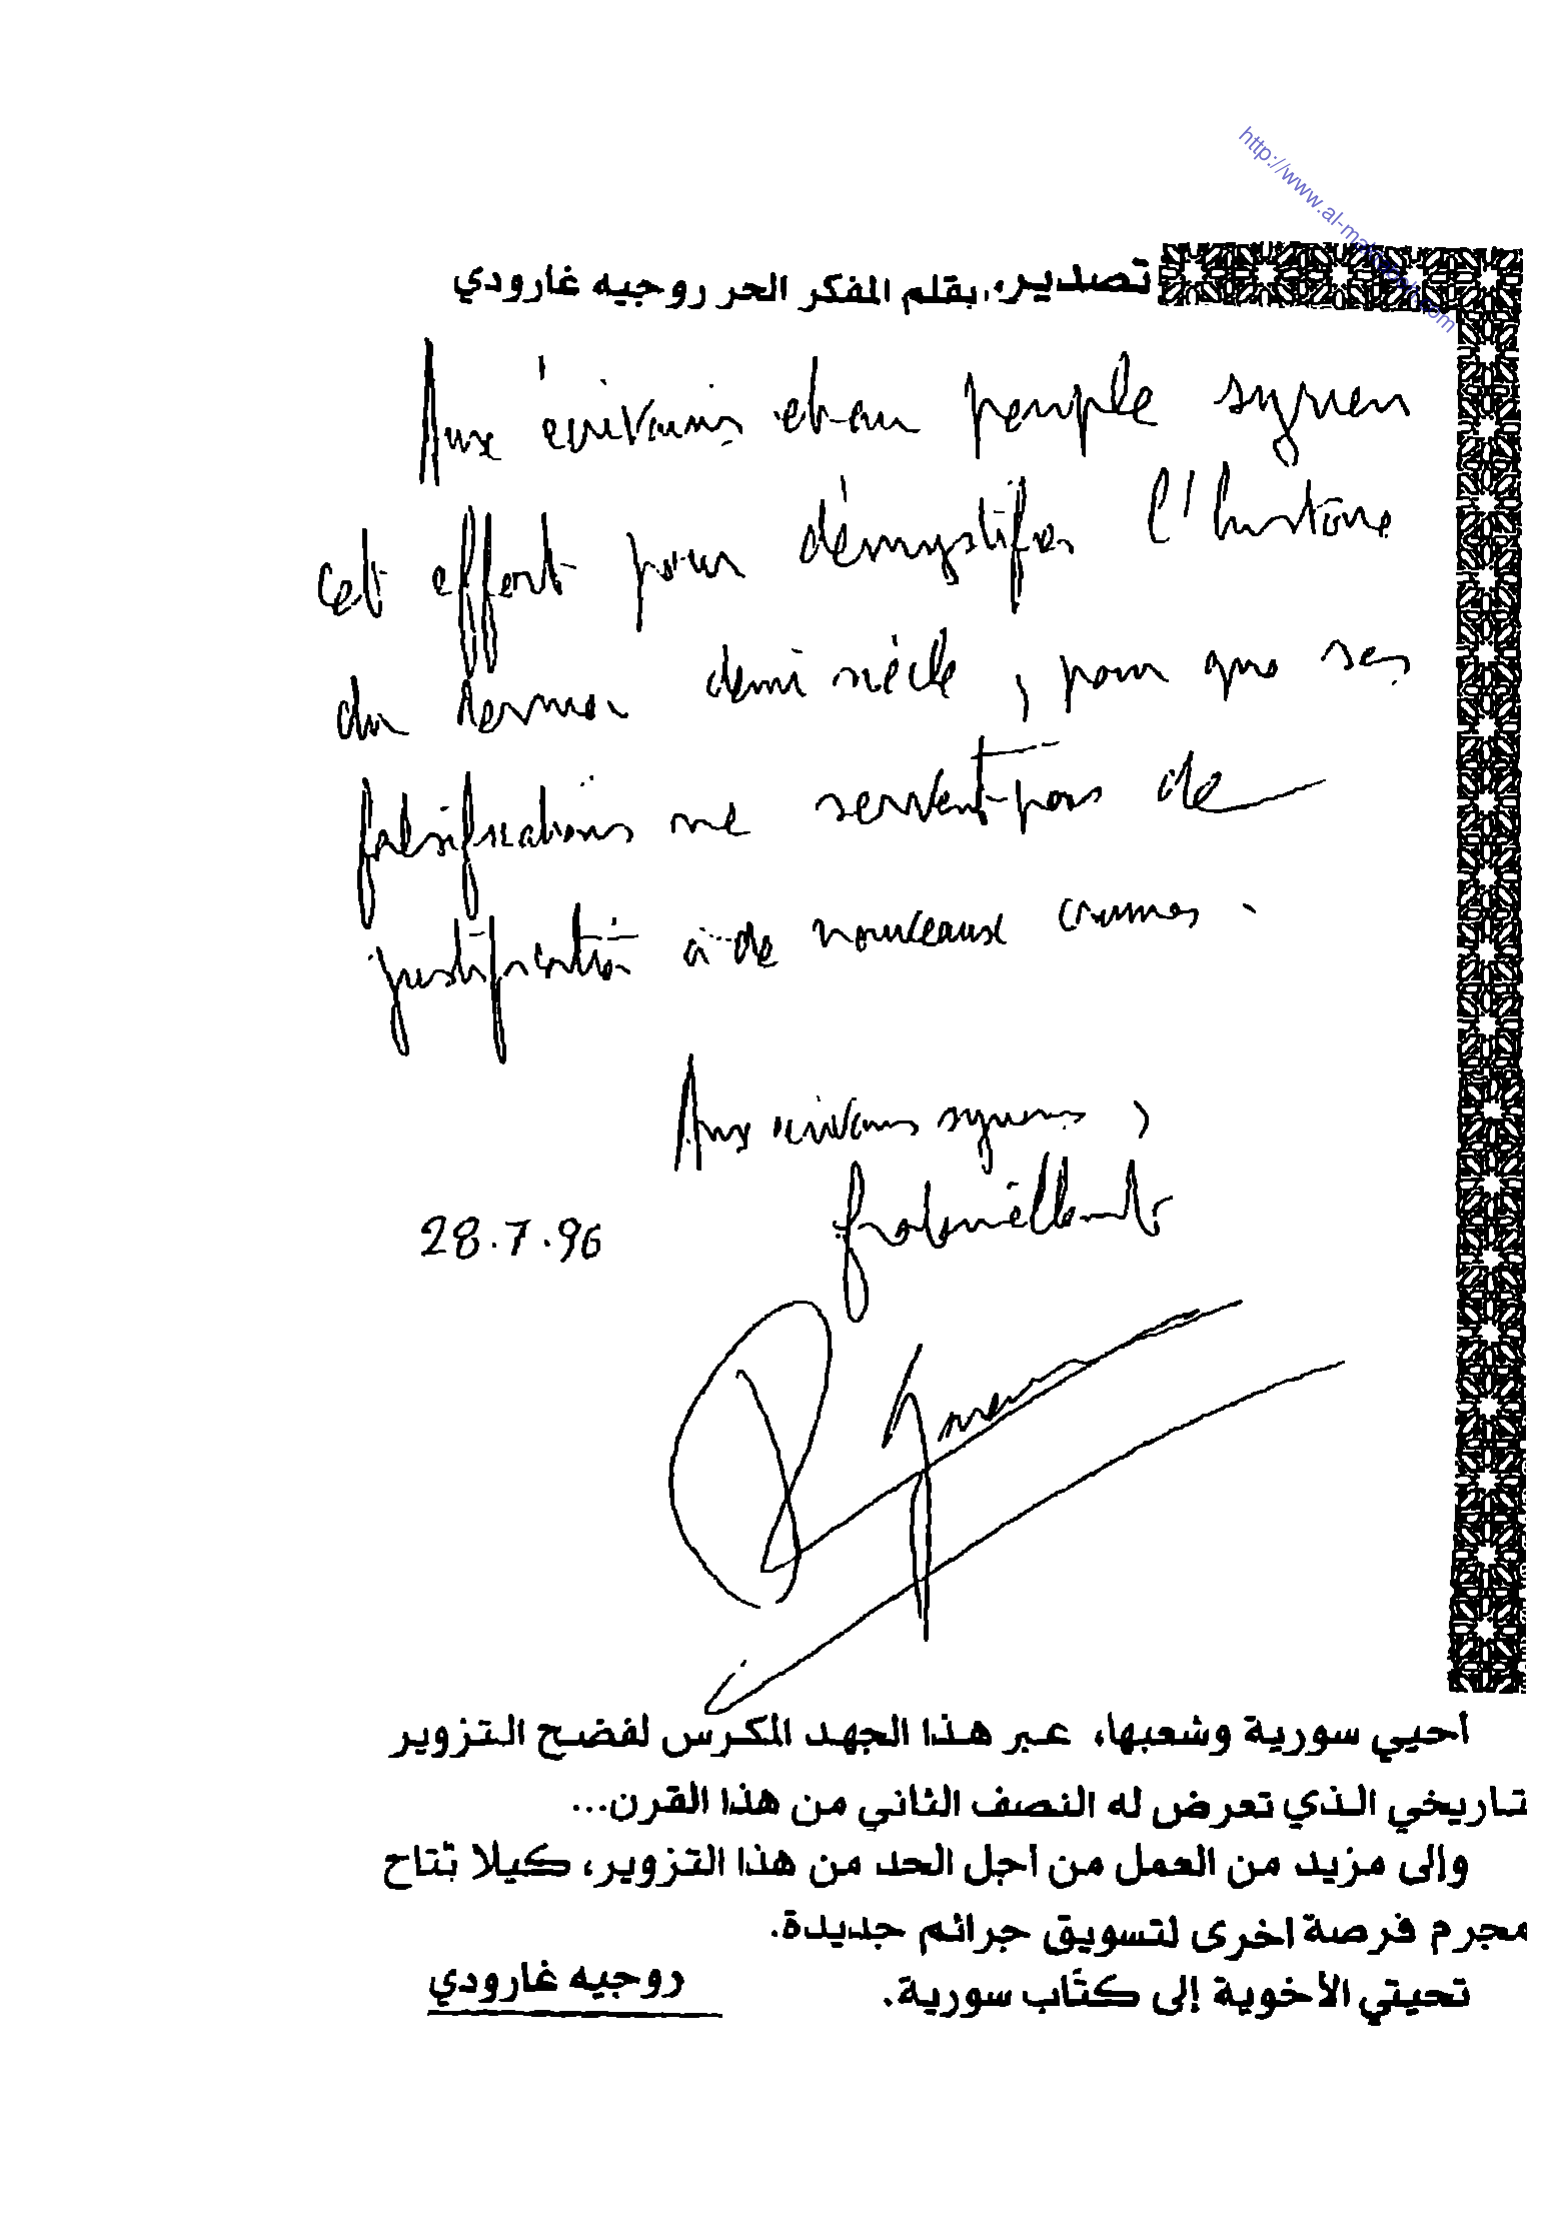 تصدير، بقلم المفكر الحر روجيه غارودي
Aux écrivains et au peuple syrien
cet effort pour démystifier l'histoire
du dernier demi siècle, pour que ses
falsifications ne servent pas de
justification à de nouveaux crimes.
Aux écrivains syriens,
fraternellement
28.7.96
أحيي سورية وشعبها، عبر هذا الجهد المكرس لفضح التزوير
تاريخي الذي تعرض له النصف الثاني من هذا القرن...
وإلى مزيد من العمل من أجل الحد من هذا التزوير، كيلا تُتاح
مجرم فرصة اخرى لتسويق جرائم جديدة.
تحيتي الأخوية إلى كتّاب سورية.
روجيه غارودي